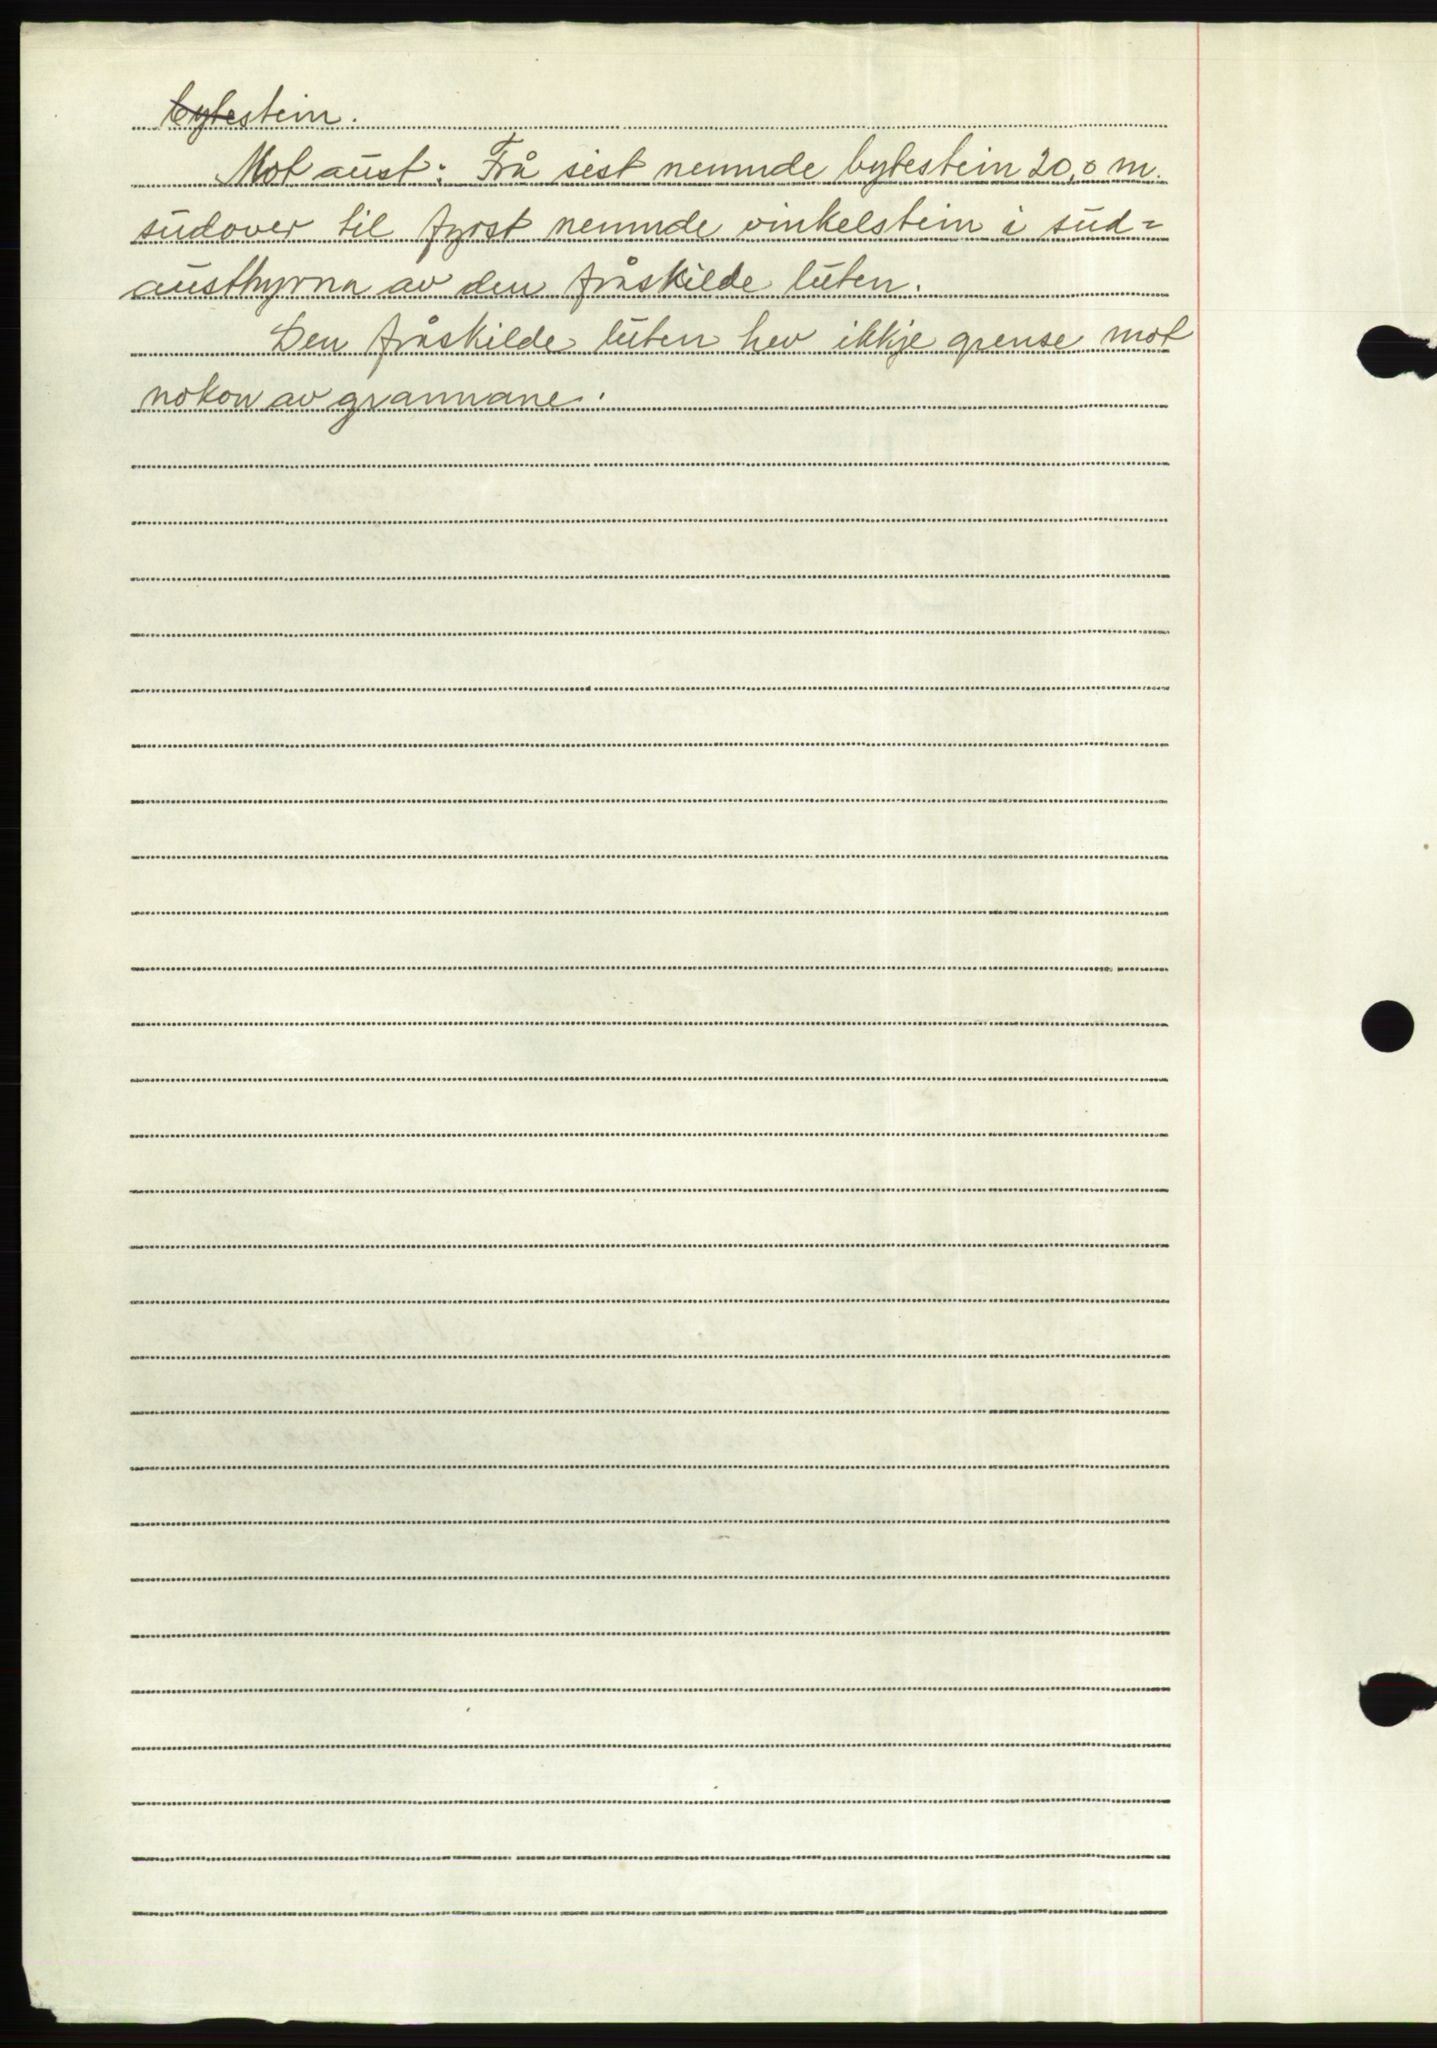 bytestein.
Mot aust: Frå sist nemnde bytestein 20,0 m.
sudover til fyrst nemnde vinkelstein i sud=
austhyrna av den fråskilde luten.
Den fråskilde luten hev ikkje grense mot
nokon av grannane.